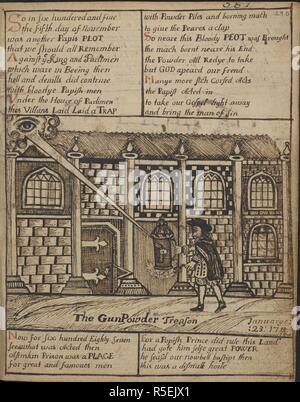 So in six hundred and five
the fifth day of November
was another Papis PLOT
that we should all Remember
Against ye King and
which ware in Beeing then
hell and devills did contrive
with bloodye Papish men
Under the House of
this Villans Laid Laid a TRAP
with Powder Piles and borning mach
to give the Peares a clap
So neare this Bloody PLOT was Brought
the match bornt neare his End
the Powder all Redye to take
but GOD apeard our frend
Manye more such Corsed acts
the Papish acted in
to take our Gospel away
and bring the man of sin
The GunPowder Treason
January
23:
Now for six hundred Eighty Seven
what was acted then
Prison was a PLACE
for great and famous men
For a Popish Prince did rule this Land
had gote him selfe great POWER
he
this was a dismale
alamy
Image ID: R5EJX1
www.alamy.com